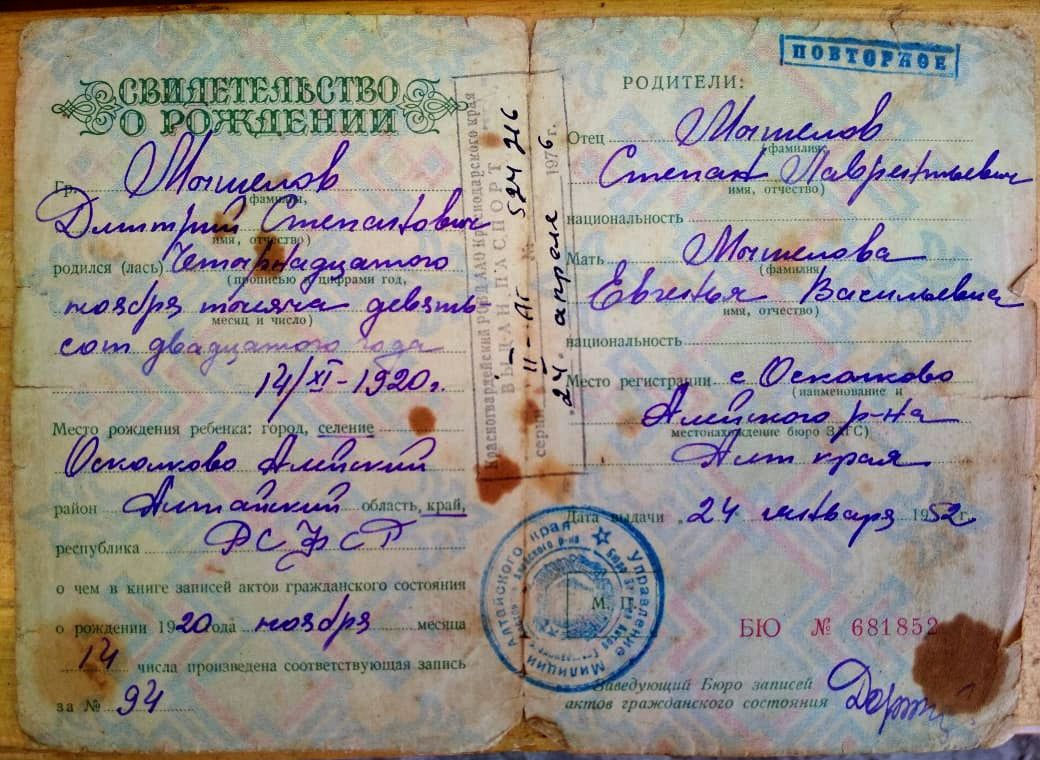 СВИДЕТЕЛЬСТВО
О РОЖДЕНИИ
Гр. Мышелов
фамилия,
Дмитрий Степанович
имя, отчество)
родился (лась) Четырнадцатого
(прописью и цифрами год,
ноября тысяча девять
месяц и число)
сот двадцатого года
14/XI-1920г.
Место рождения ребенка: город, селение
Осколково Алейский
район Алтайский область, край,
республика РСФСР
о чем в книге записей актов гражданского состояния
о рождении 1920 года ноября месяца
14 числа произведена соответствующая запись
за № 94
Красногвардейским РОВД ААО Краснодарского края
ВЫДАН ПАСПОРТ
серии II-АГ № 524216
"24" апреля 1976 г.
ПОВТОРНОЕ
РОДИТЕЛИ:
Отец Мышелов
(фамилия,
Степан Лаврентьевич
имя, отчество)
национальность
Мать Мышелова
(фамилия
Евгенья Васильевна
имя, отчество)
национальность
Место регистрации с Осколково
(наименование и
Алейского р-на
местонахождение бюро ЗАГС)
Алт края
Дата выдачи „24 января 1952г.
М. П.
Управление Милиции Алтайского края
БЮ № 681852
Заведующий Бюро записей
актов гражданского состояния